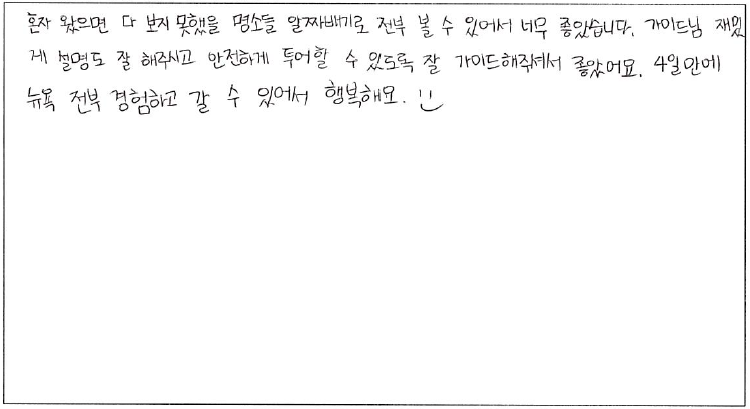 혼자 왔으면 다 보지 못했을 명소들 알짜배기로 전부 볼 수 있어서 너무 좋았습니다. 가이드님 재밌
게 설명도 잘 해주시고 안전하게 투어할 수 있도록 잘 가이드해줘서 좋았어요. 4일만에
뉴욕 전부 경험하고 갈 수 있어서 행복해요. :)